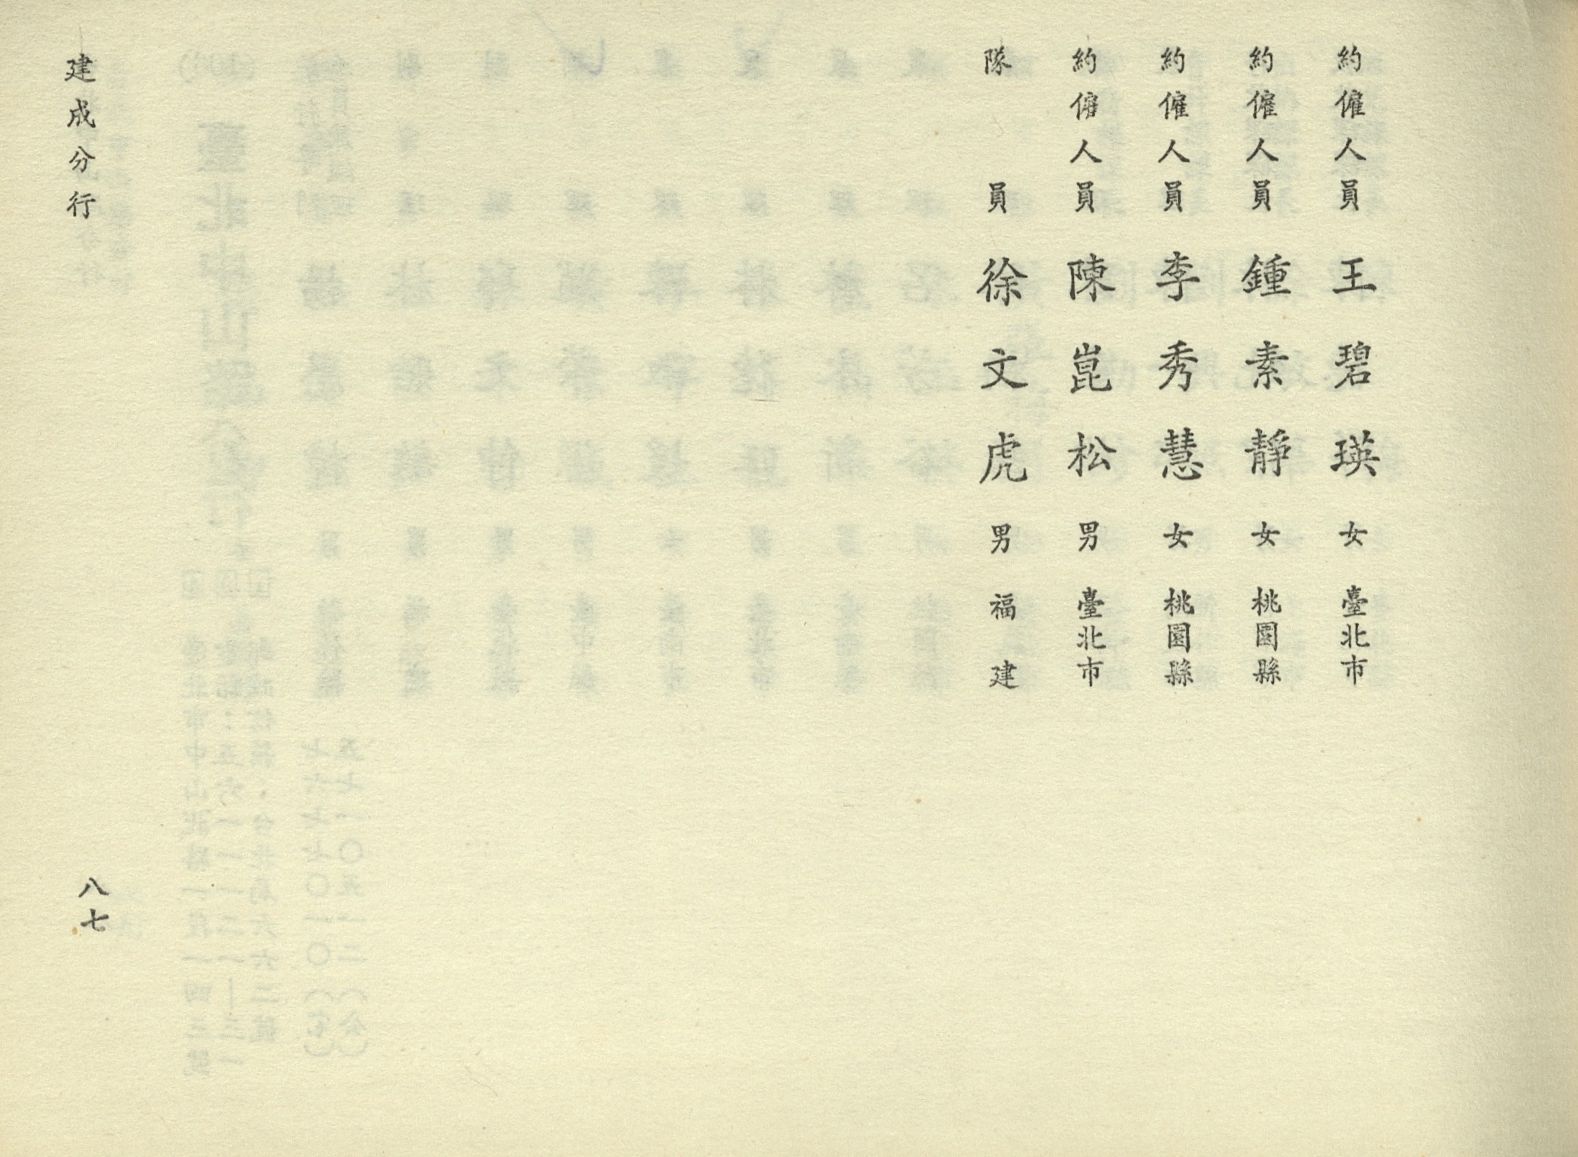 約僱人員 王碧瑛 女 臺北市
約僱人員 鍾素靜 女 桃園縣
約僱人員 李秀慧 女 桃園縣
約僱人員 陳崑松 男 臺北市
隊員 徐文虎 男 福建
建成分行
八七